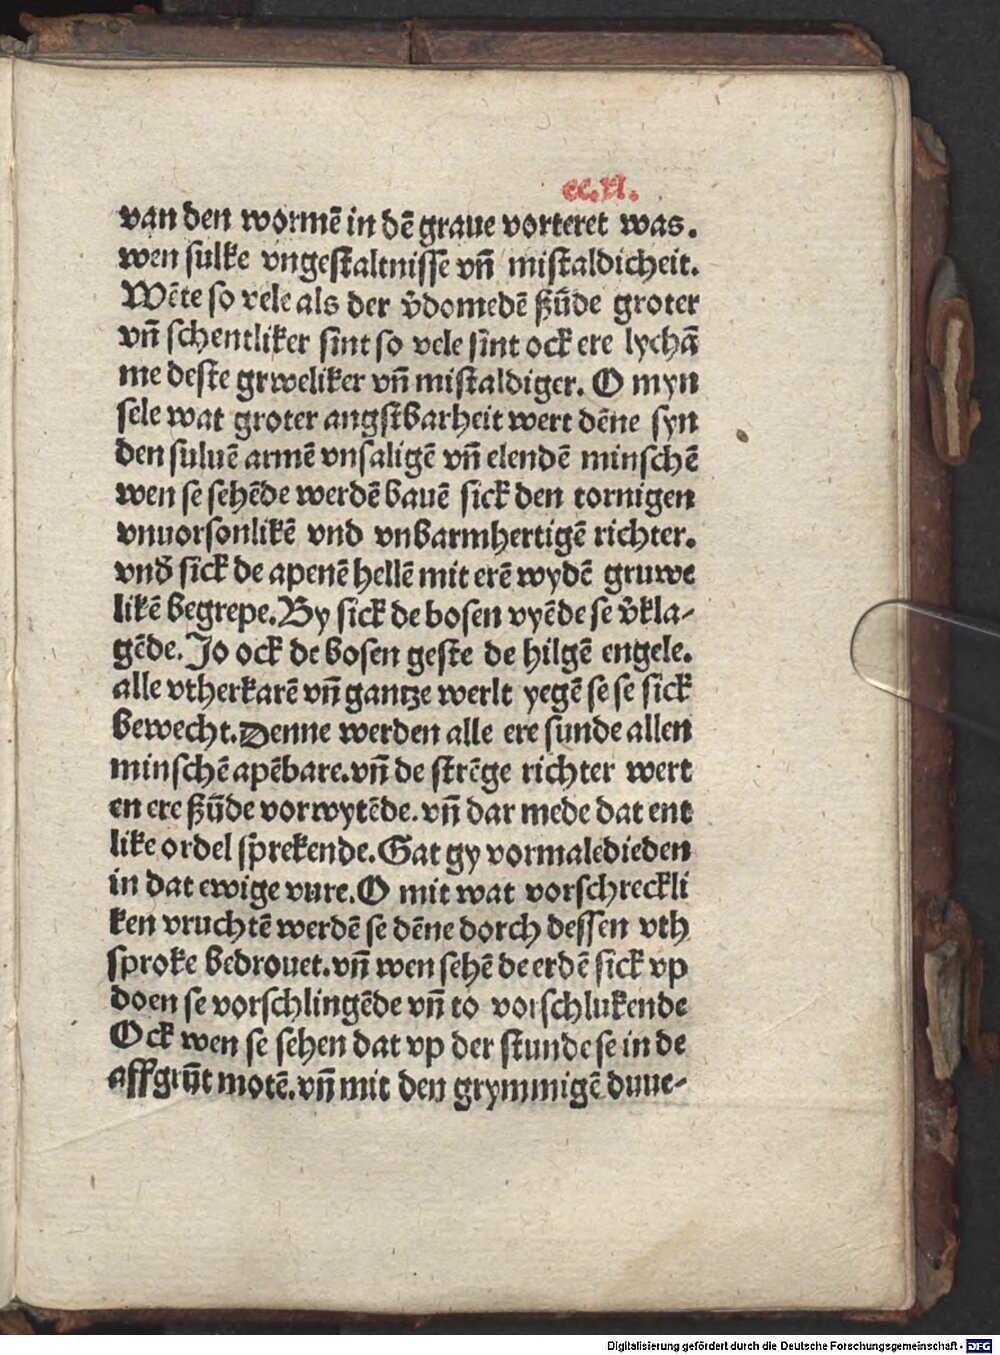 cc.xl.
van den wormē in dē graue vorteret was.
wen sulke vngestaltnisse vn̄ mistaldicheit.
Wēte so vele als der v̄domedē ßūde groter
vn̄ schentliker sint so vele sint ock ere lychā
me deste grweliker vn̄ mistaldiger. O myn
sele wat groter angstbarheit wert dēne syn
den suluē armē vnsaligē vn̄ elendē minschē
wen se sehēde werdē bauē sick den tornigen
vnuorsonlikē vnd vnbarmhertigē richter.
vnd̄ sick de apenē hellē mit erē wydē gruwe
likē begrepe. By sick de bosen vyēde se v̄kla-
gēde. Jo ock de bosen geste de hilgē engele.
alle vtherkarē vn̄ gantze werlt yegē se se sick
bewecht. Denne werden alle ere sunde allen
minschē apēbare. vn̄ de strēge richter wert
en ere ßūde vorwytēde. vn̄ dar mede dat ent
like ordel sprekende. Gat gy vormaledieden
in dat ewige vure. O mit wat vorschreckli
ken vruchtē werdē se dēne dorch dessen vth
sproke bedrouet. vn̄ wen sehē de erdē sick vp
doen se vorschlingēde vn̄ to vorschlukende
Ock wen se sehen dat vp der stunde se in de
affgrūt motē. vn̄ mit den grymmigē duue-
Digitalisierung gefördert durch die Deutsche Forschungsgemeinschaft - DFG